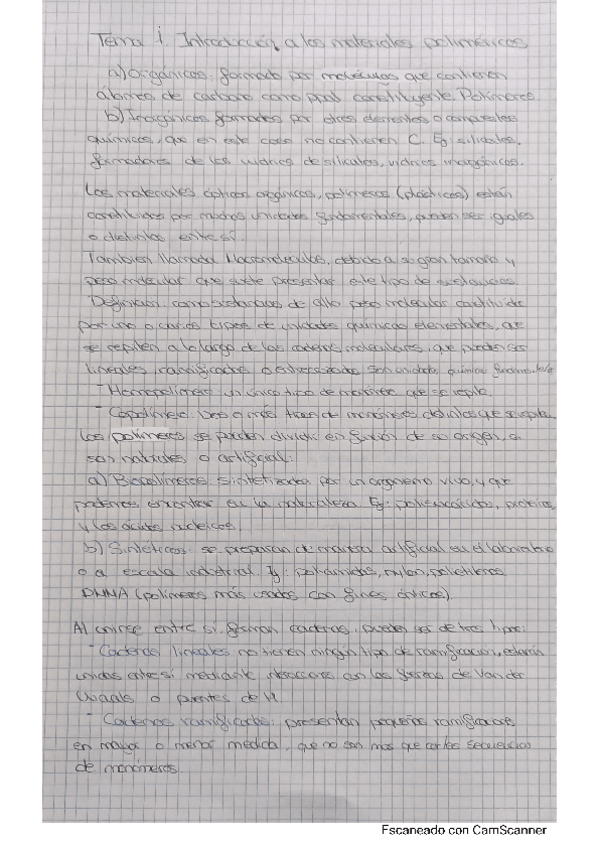 Tema 1. Introducción a los materiales poliméricos
a) Orgánicos: formado por moléculas que contienen
átomos de carbono como ppal constituyente. Polímeros
b) Inorgánicos formados por otros elementos o compuestos
químicos, que en este caso no contienen C. Ej silicatos,
formadores de los vidrios de silicatos, vidrios inorgánicos.
Los materiales ópticos orgánicos, polímeros (plásticos) están
constituidos por muchas unidades fundamentales, pueden ser iguales
o distintas entre sí.
También llamada Macromoléculas, debido a su gran tamaño y
peso molecular que suele presentar este tipo de sustancias.
Definición: como sustancias de alto peso molecular constituida
por uno o varios tipos de unidades químicas elementales, que
se repiten a lo largo de las cadenas moleculares, que pueden ser
lineales, ramificadas o entrecruzadas son unidades químicas fundamentales
- Homopolímero un único tipo de monómero que se repite.
- Copolímero: Dos o más tipos de monómeros distintos que se repiten
Los polímeros se pueden dividir en función de su origen, si
son naturales o artificial:
a) Biopolímeros: sintetizados por un organismo vivo, y que
podemos encontrar en la naturaleza Ej: polisacáridos, proteínas
y los ácidos nucleicos.
b) Sintéticos: se preparan de manera artificial en el laboratorio
o a escala industrial. Ej: poliamidas, nylon, polietilenos
PMMA (polímeros más usados con fines ópticos).
Al unirse entre sí forman cadenas, pueden ser de tres tipos:
- Cadenas lineales no tienen ningún tipo de ramificación, estarán
unidas entre sí mediante interacciones con las fuerzas de Van der
Waals o puentes de H.
- Cadenas ramificadas: presentan pequeñas ramificaciones
en mayor o menor medida, que no son mas que cortas secuencias
de monómeros.
Escaneado con CamScanner